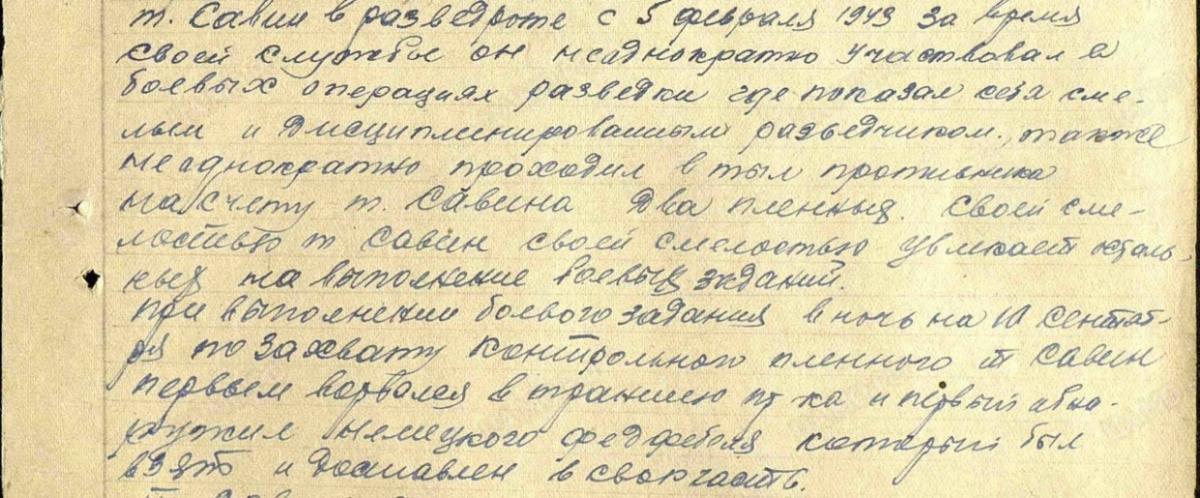 т. Савин в разведроте с 5 февраля 1943 за время
своей службы он неоднократно участвовал в
боевых операциях разведки где показал себя сме-
лым и дисциплинированным разведчиком, также
неоднократно проходил в тыл противника
на счету т. Савина два пленных. Своей сме-
лостью т Савин своей смелостью увлекает осталь-
ных на выполнение боевых зкданий.
При выполнении боевого задания в ночь на 10 сентяб-
ря по захвату контрольного пленного т Савин
первым ворвался в траншею пр-ка и первый обна-
ружил немецкого федфебеля который был
взят и доставлен в свою часть.